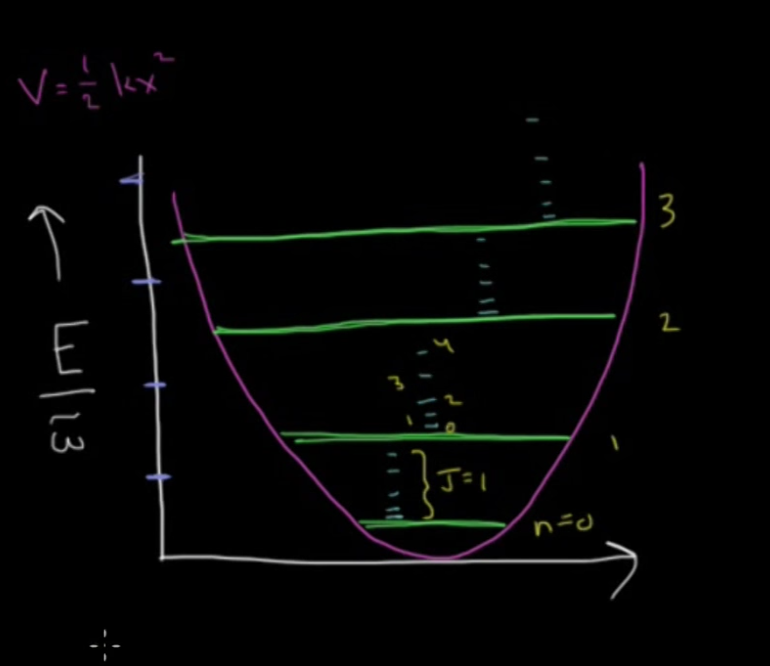 V = 1/2 kx²
3
E
2
4
3
2
1
0
1
J=1
n=0
ω̃